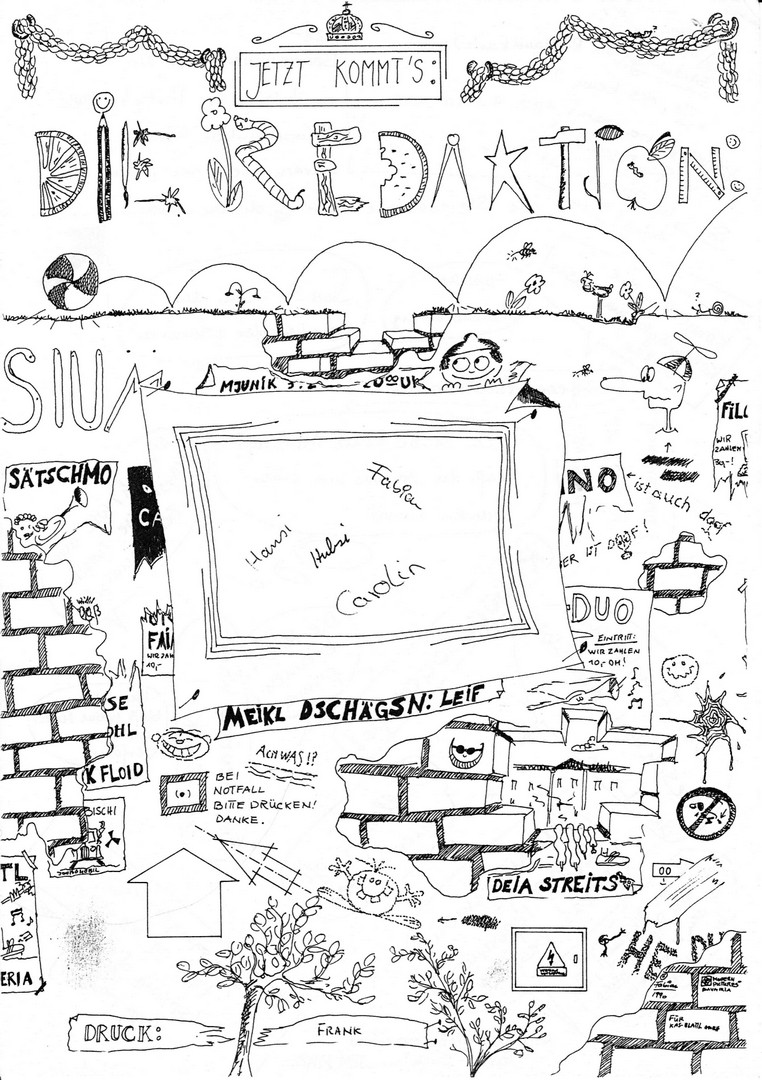 JETZT KOMMT'S:
DIE REDAKTION:
MJUNIK
SIUM
FILL
WIR
ZAHLEN
30,-!
SÄTSCHMO
CA
NO
← ist auch doof
ER IST DOOF!
Fabian
Hansi
Hubsi
Carolin
-DUO
EINTRITT:
WIR ZAHLEN
10,- OH!
FAI
WIR ZAHLEN
10,-
SE
OHL
K FLOID
MEIKL DSCHÄGSN: LEIF
ACH WAS!?
BEI
NOTFALL
BITTE DRÜCKEN!
DANKE.
BISCHI
DEIA STREITS
TL
ERIA
HE DU
BAVARIA
FÜR
DRUCK:
FRANK